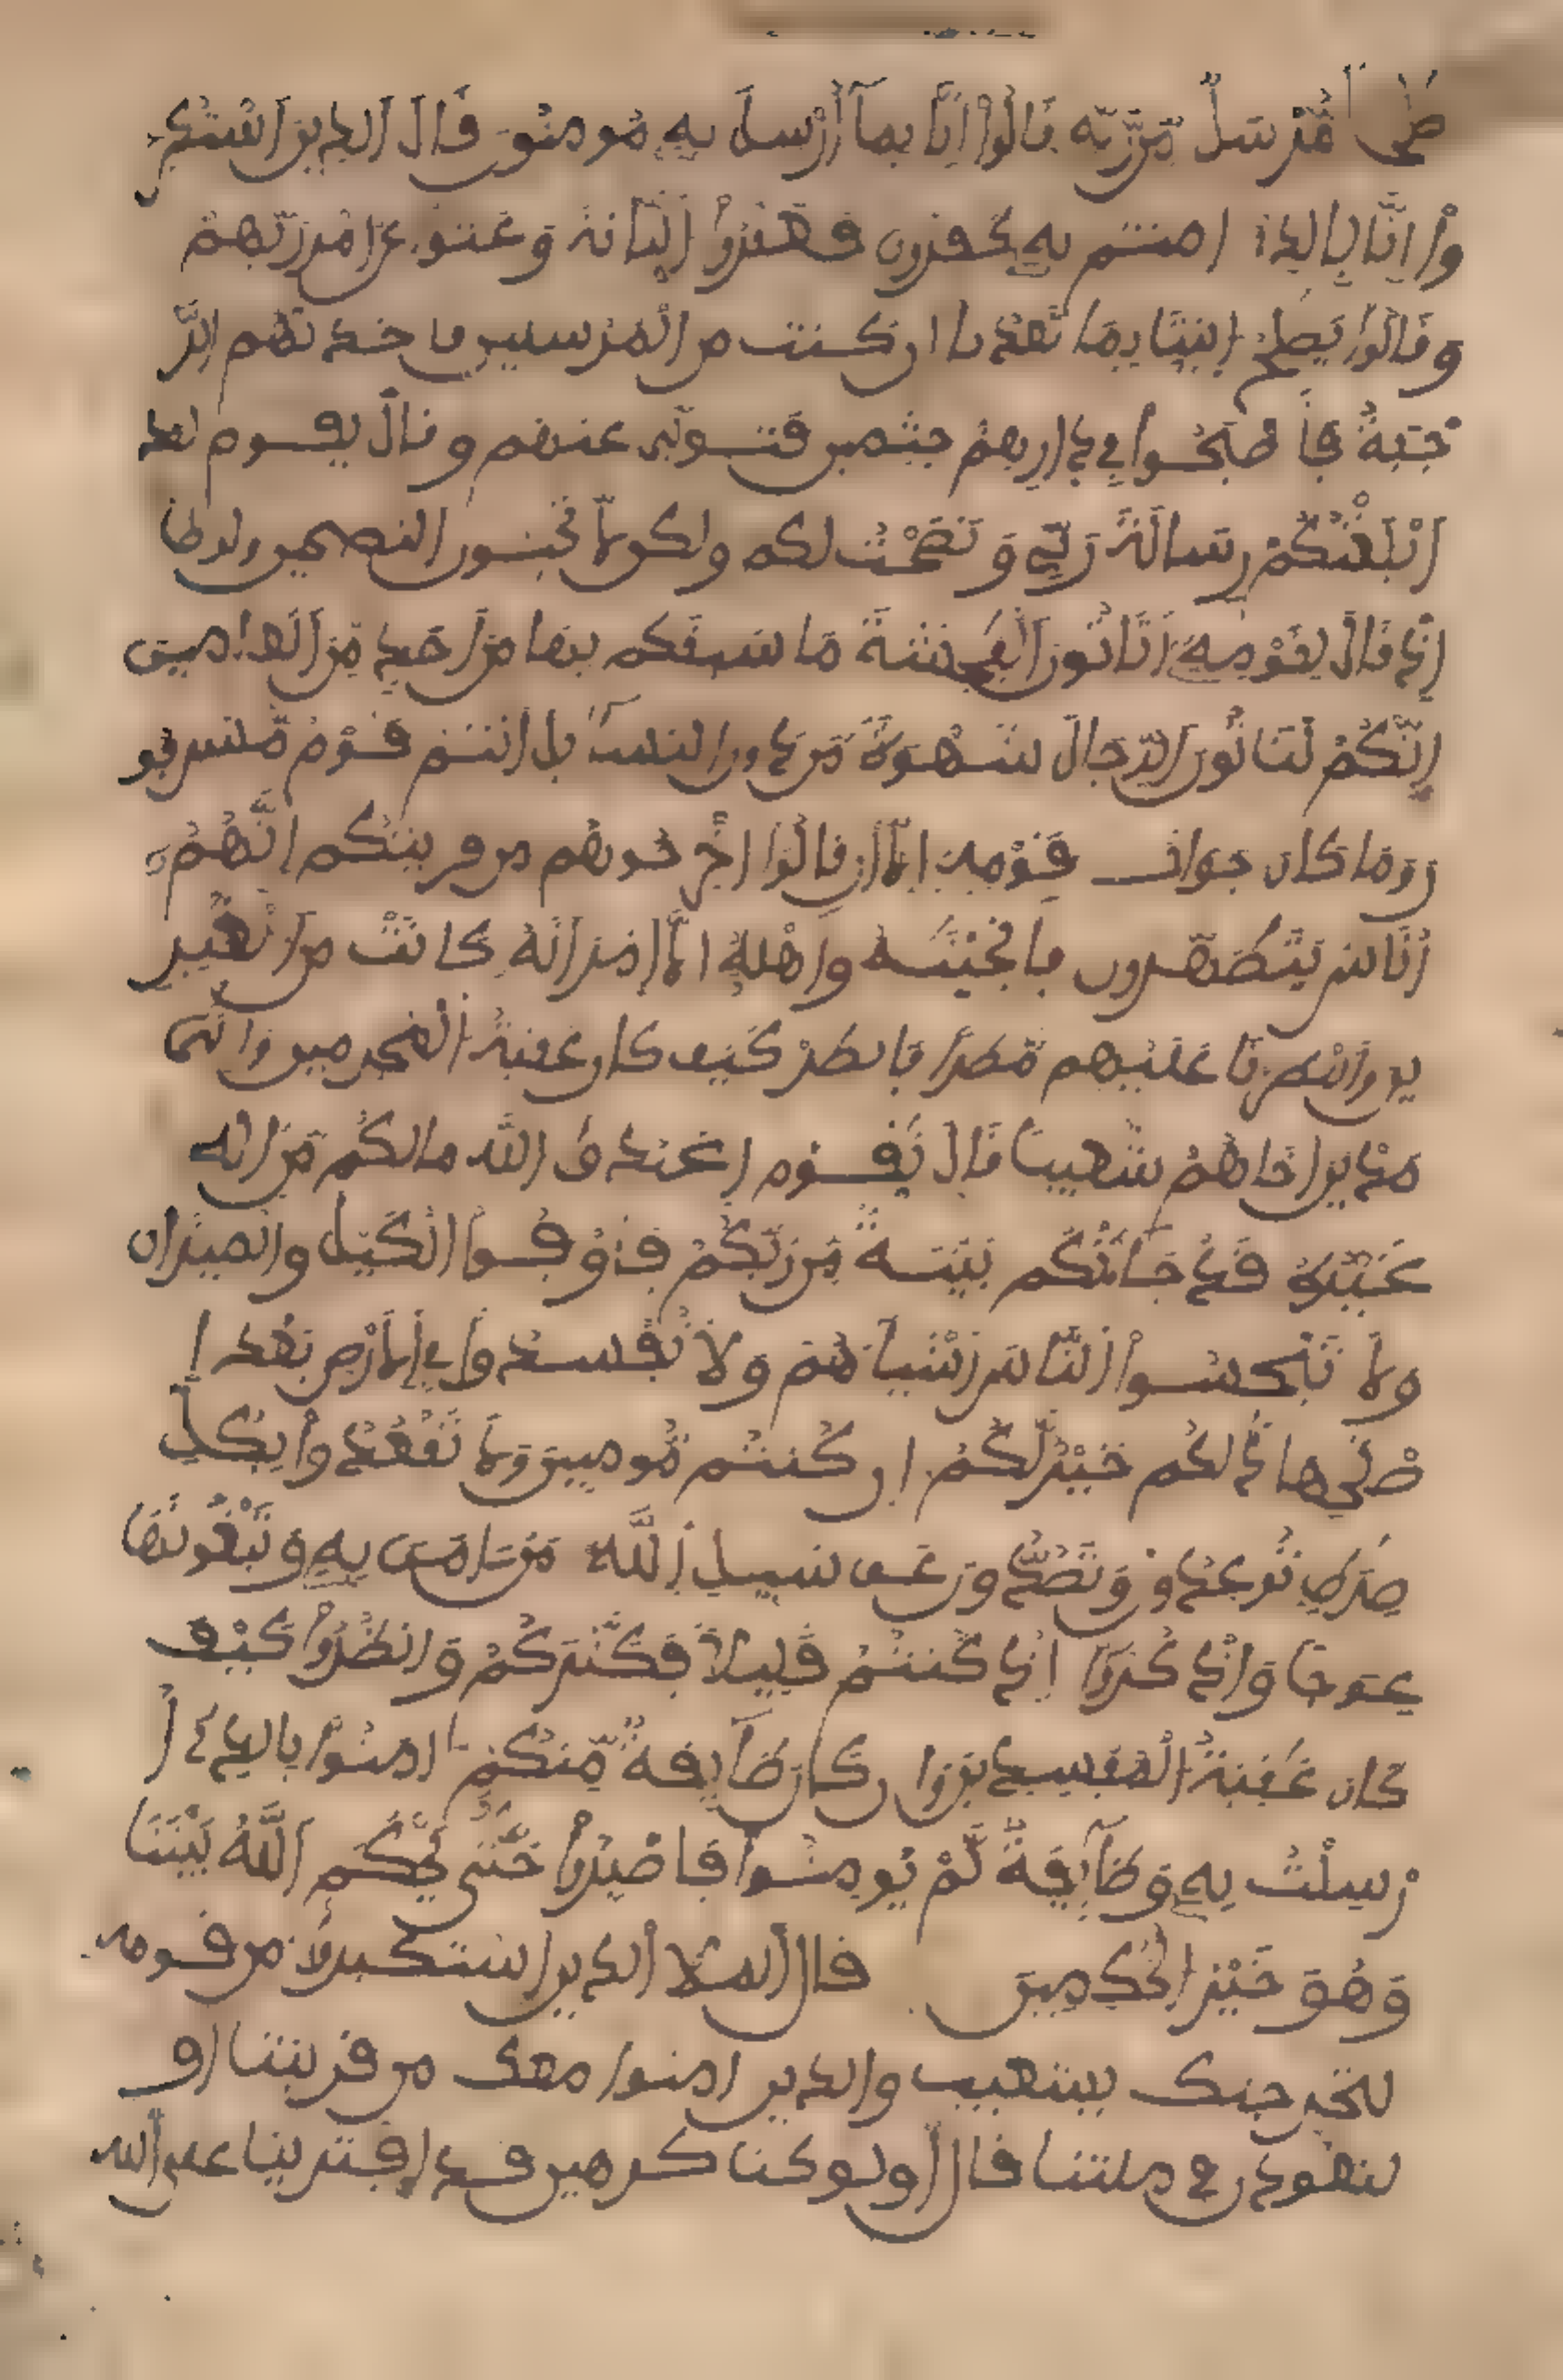 صلحا مرسل من ربه قالوا إنا بما أرسل به مومنون قال الذين استكبر
وا إنا بالذي ءامنتم به كفرون فعقروا الناقة وعتوا عن امر ربهم
وقالوا يصلح ايتنا بما تعدنا ان كنت من المرسلين فاخذتهم الر
جفة فأصبحوا في دارهم جثمين فتولى عنهم وقال يقوم لقد
ابلغتكم رسالة ربي ونصحت لكم ولكن لا تحبون النصحين ولوطا
اذ قال لقومه اتاتون الفحشة ما سبقكم بها من احد من العلمين
إنكم لتاتون الرجال شهوة من دون النسا بل انتم قوم مسرفو
ن وما كان جواب قومه إلا أن قالوا اخرجوهم من قريتكم إنهم
أناس يتطهرون فانجينه واهله الا امراته كانت من الغبر
ين وامطرنا عليهم مطرا فانظر كيف كان عقبة المجرمين والى
مدين اخاهم شعيبا قال يقوم اعبدوا الله ما لكم من اله
غيره قد جاتكم بينة من ربكم فأوفوا الكيل والميزان
ولا تبخسوا الناس أشياهم ولا تفسدوا في الارض بعد إ
صلحها ذلكم خير لكم ان كنتم مومنين ولا تقعدوا بكل
صرط توعدون وتصدون عن سبيل الله من ءامن به وتبغونها
عوجا واذكروا إذ كنتم قليلا فكثركم وانظروا كيف
كان عقبة المفسدين وان كان طآيفة منكم ءامنوا بالذي أ
رسلت به وطآيفة لم يومنوا فاصبروا حتى يحكم الله بيننا
وهو خير الحكمين قال الملا الذين استكبروا من قومه
لنخرجنك يشعيب والذين امنوا معك من قريتنا او
لتعودن في ملتنا قال أولو كنا كرهين قد افترينا على الله